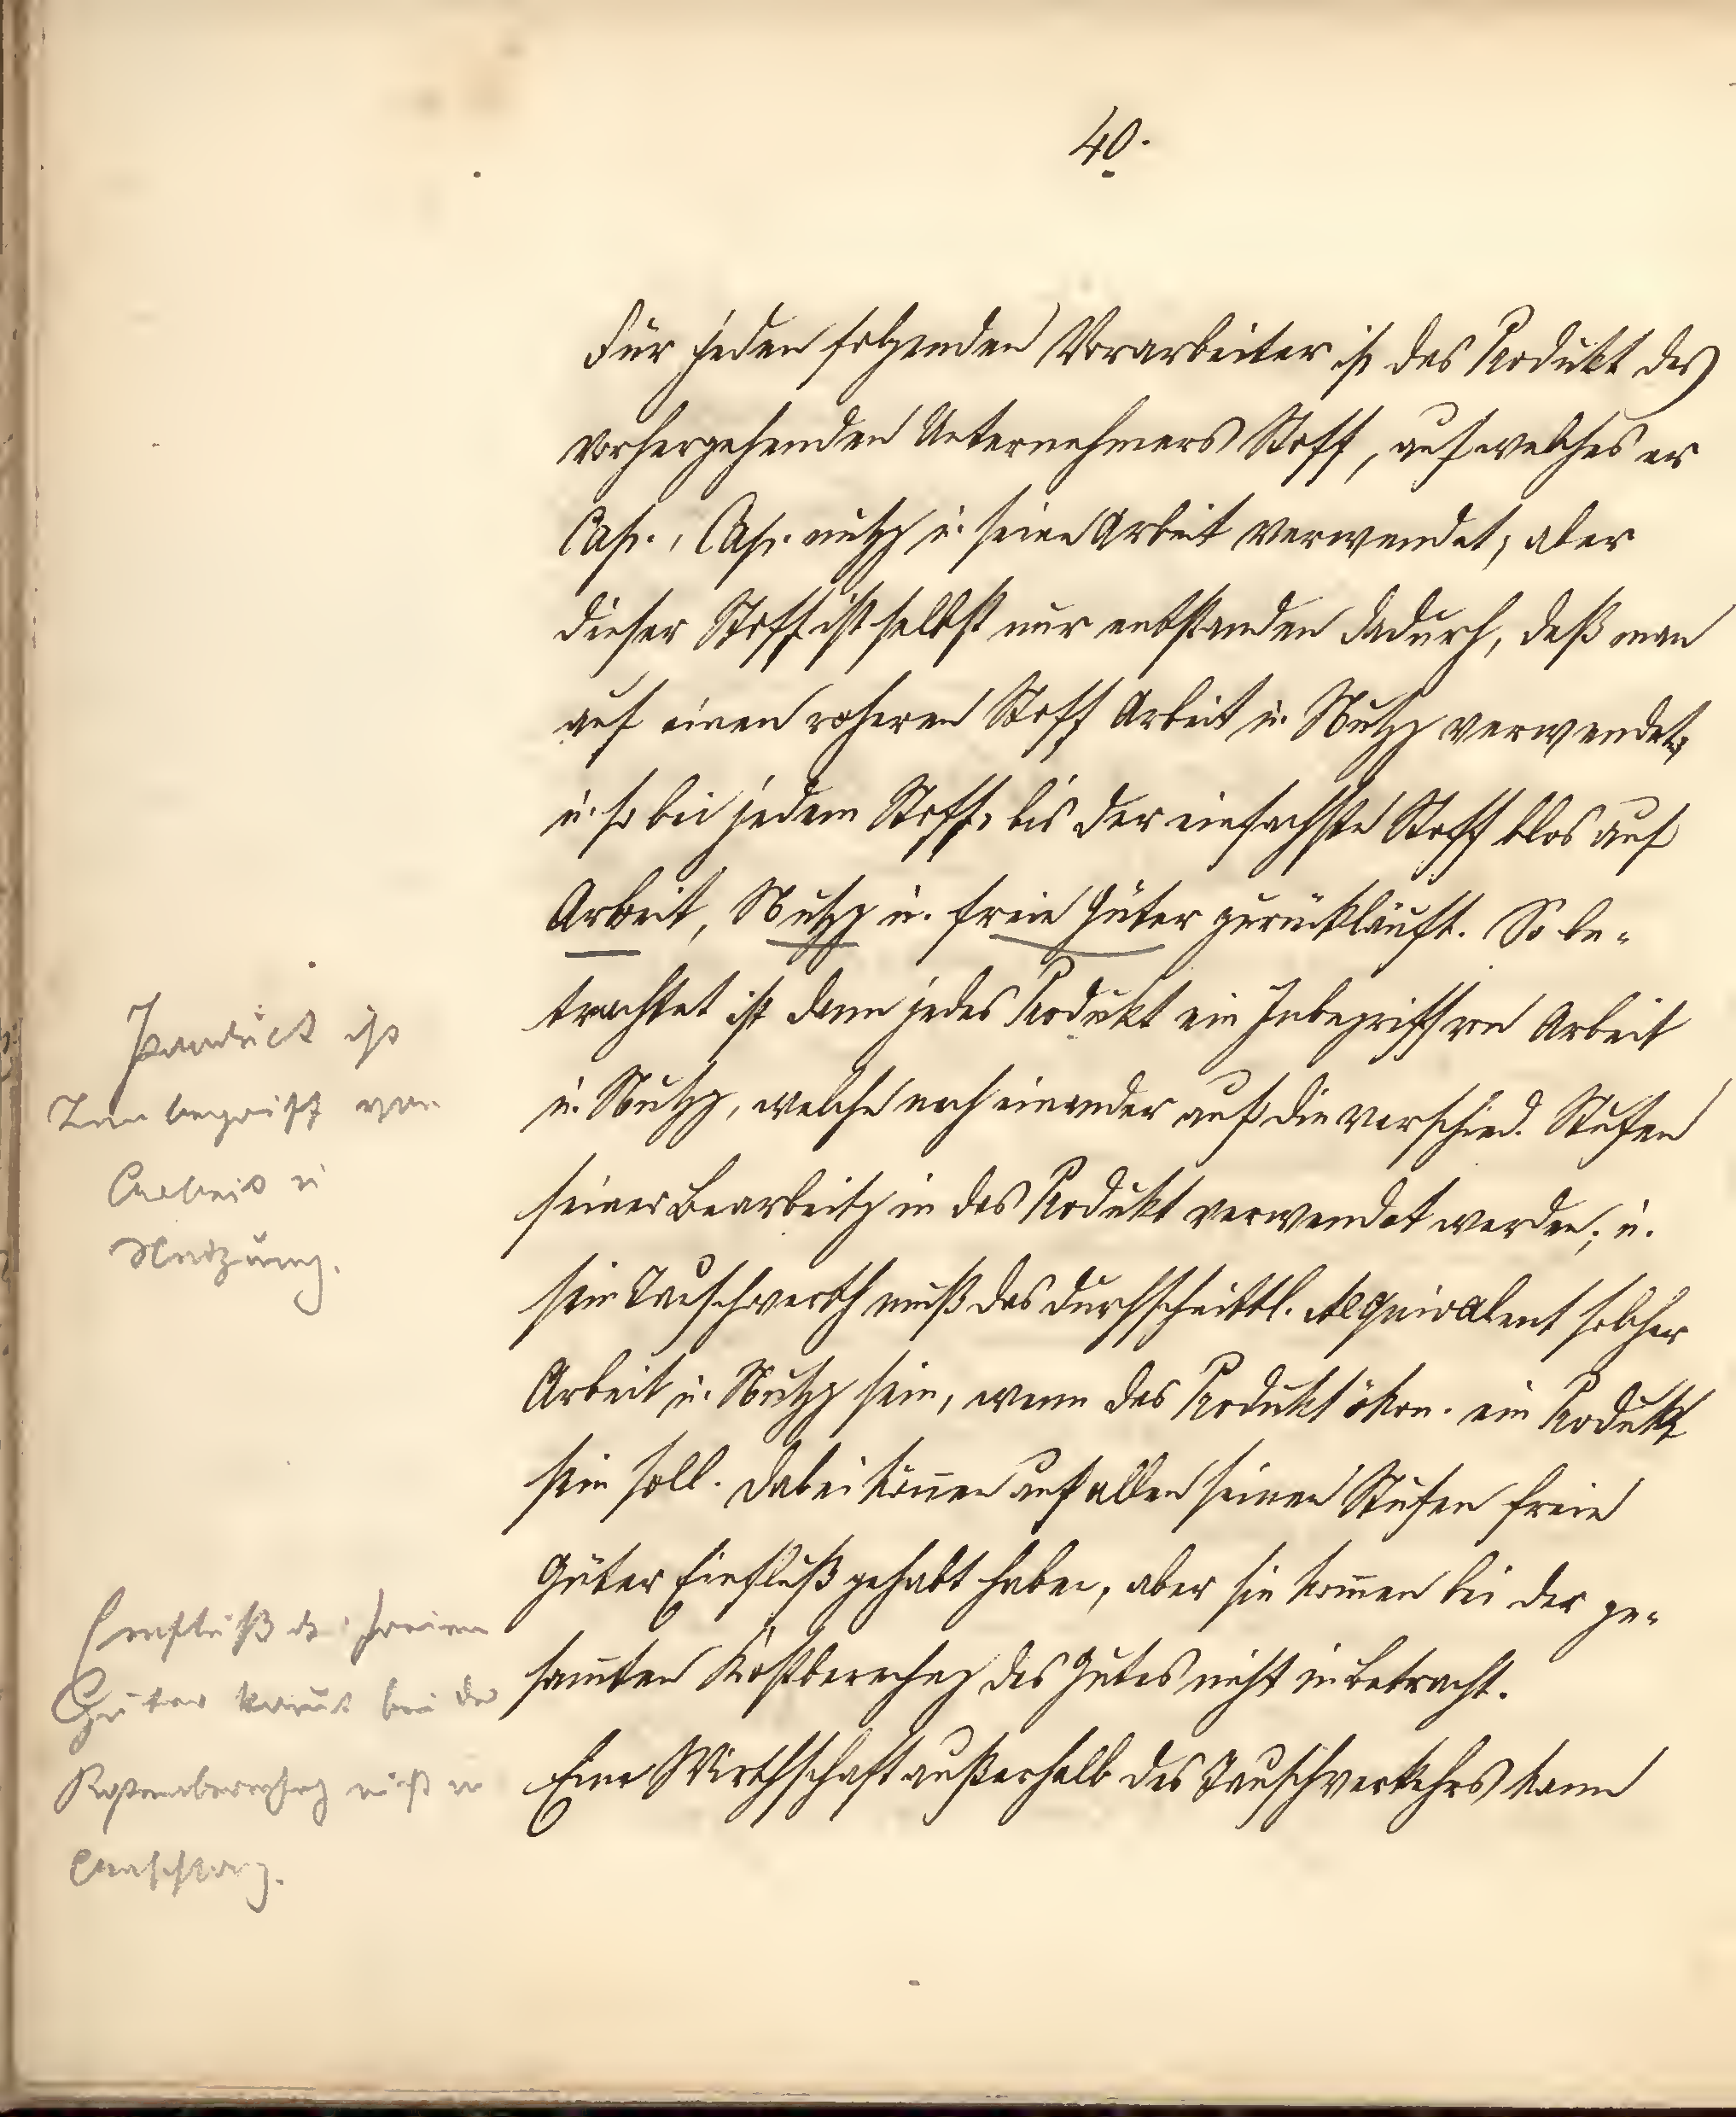 40.
Für jeden folgenden Vorarbeiter ist das Produkt des
vorhergehenden Unternehmers Stoff, auf welches er
Cap., Cap. nutzg u. seine Arbeit verwendet; aber
dieser Stoff ist selbst nur entstanden dadurch, daß man
auf einen roheren Stoff Arbeit u. Nutzg verwendet,
u. so bei jedem Stoff, bis der einfachste Stoff blos auf
Arbeit, Nutzg u. freie Güter zurückläuft. So be-
trachtet ist dann jedes Produkt ein Inbegriff von Arbeit
u. Nutzg, welche nach einander auf die verschied. Stufen
seiner Bearbeitg in das Produkt verwendet werden; u.
sein Tauschwerth muß das durchschnittl. Aequivalent solcher
Arbeit u. Nutzg sein, wenn das Produkt ökon. ein Produkt
sein soll. Dabei können auf allen seinen Stufen freie
Güter Einfluß gehabt haben, aber sie kommen bei der ge-
sammten Kostberechng des Gutes nicht in Betracht.
Eine Wirthschaft außerhalb des Tauschverkehrs kann
Product ist
Inbegriff von
Arbeit u
Nutzung.
Einfluß der freien
Güter kommt bei der
Kostenberechng nicht in
Anschlag.